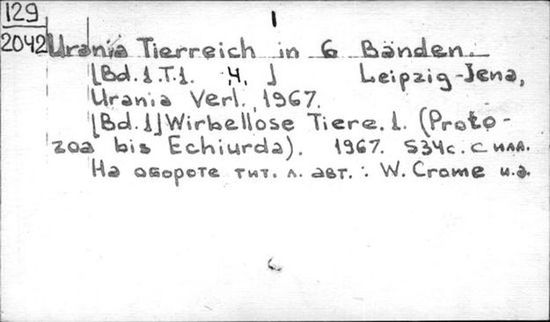 1
129
2042
Urania Tierreich in 6 Bänden.
[Bd.1.T.1. Ч. ] Leipzig-Jena,
Urania Verl., 1967.
[Bd.1] Wirbellose Tiere.1. (Proto-
zoa bis Echiurda). 1967. 534с. с илл.
На обороте тит. л. авт.: W. Crome и.а.